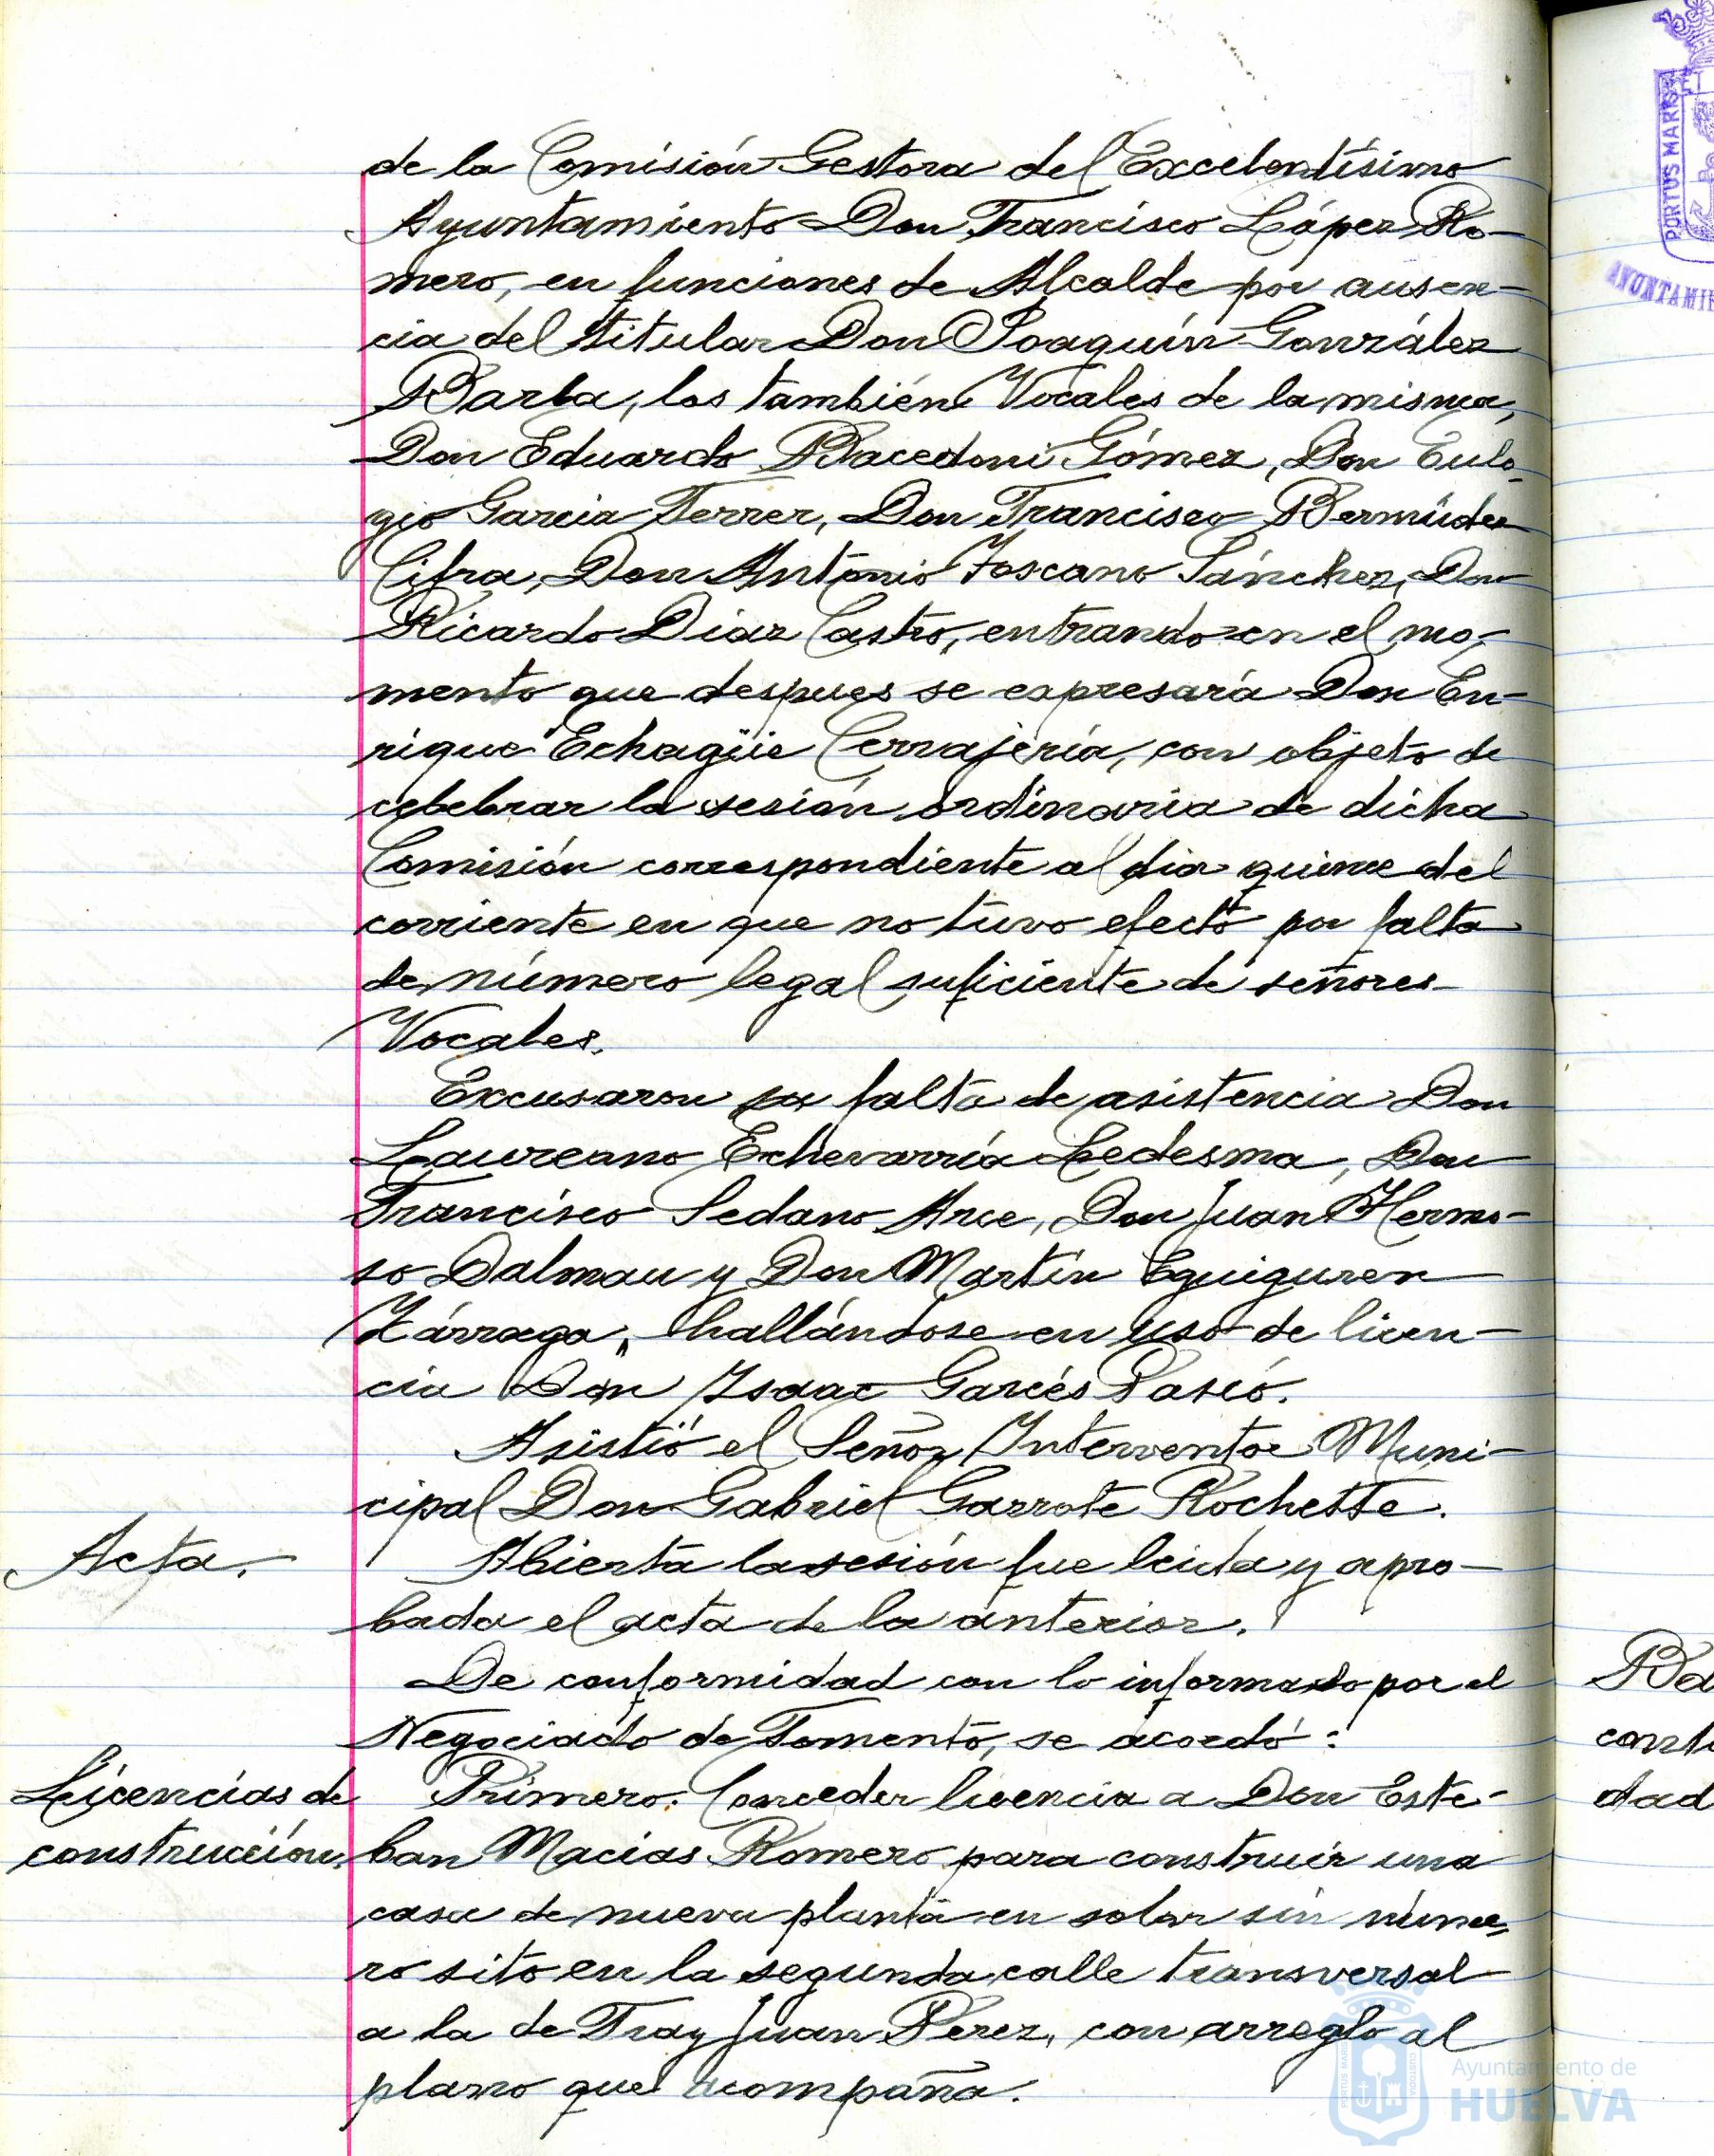 de la Comisión Gestora del Excelentísimo
Ayuntamiento Don Francisco López Ro-
mero, en funciones de Alcalde por ausen-
cia del titular Don Joaquín González
Barba, los también Vocales de la misma,
Don Eduardo Bacedoni Gómez, Don Eulo-
gio Garcia Ferrer, Don Francisco Bermúdez
Cifra, Don Antonio Toscano Sánchez, Don
Ricardo Diaz Castro, entrando en el mo-
mento que despues se expresará Don En-
rique Echagüe Cerrajería, con objeto de
celebrar la sesión ordinaria de dicha
Comisión correspondiente al dia quince del
corriente en que no tuvo efecto por falta
de número legal suficiente de señores
Vocales.
Excusaron su falta de asistencia Don
Laureano Echevarría Ledesma, Don
Francisco Sedano Arce, Don Juan Hermo-
so Dalmau y Don Martín Eguiguren
Zárraga, hallándose en uso de licen-
cia Don Isaac Garcés
Asistió el Señor Interventor Muni-
cipal Don Gabriel Garrote Rochette.
Acta.
Abierta la sesión fue leida y apro-
bada el acta de la anterior.
De conformidad con lo informado por el
Negociado de Fomento, se acordó:
Licencias de
construcción.
Primero. Conceder licencia a Don Este-
ban Macias Romero para construir una
casa de nueva planta en solar sin núme-
ro sito en la segunda calle transversal
a la de Fray Juan Pérez, con arreglo al
plano que acompaña.
PORTUS MARIS
Ayuntamiento de
HUELVA